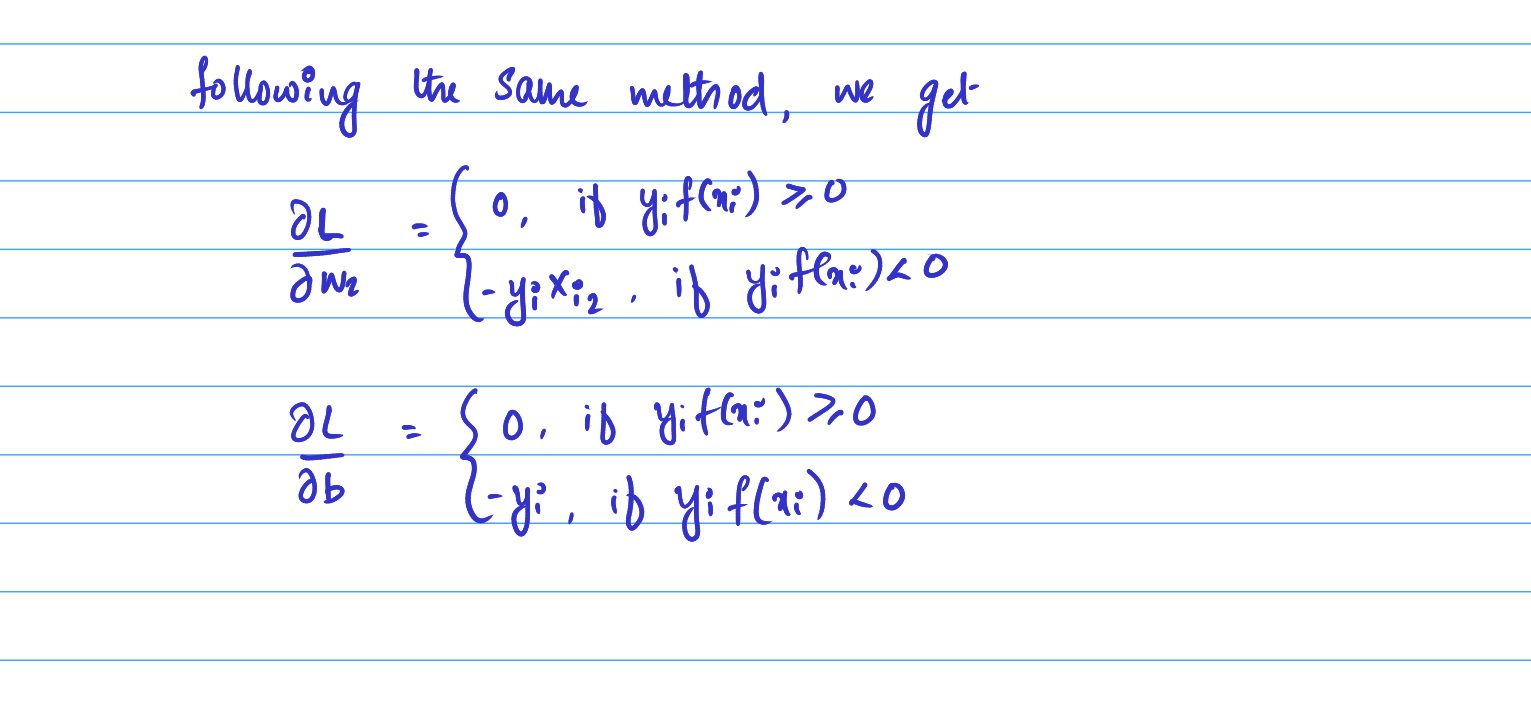 following the same method, we get
∂L/∂w₂ = { 0, if yᵢf(xᵢ) ⩾ 0
-yᵢxᵢ₂, if yᵢf(xᵢ) < 0
∂L/∂b = { 0, if yᵢf(xᵢ) ⩾ 0
-yᵢ, if yᵢf(xᵢ) < 0